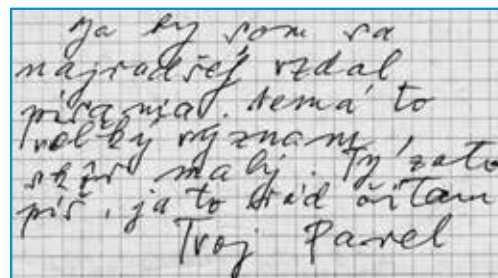 Ja by som sa
najradšej vzdal
písania. Nemá to
veľký význam,
skôr malý. Ty zato
píš, ja to rád čítam
Tvoj Pavel